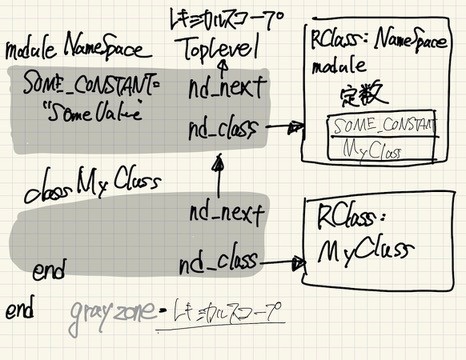 レキシカルスコープ
module NameSpace
TopLevel
SOME_CONSTANT=
"SomeValue"
nd_next
nd_class
RClass: NameSpace
module
定数
SOME_CONSTANT
MyClass
class MyClass
nd_next
nd_class
end
RClass:
MyClass
end
grayzone・レキシカルスコープ